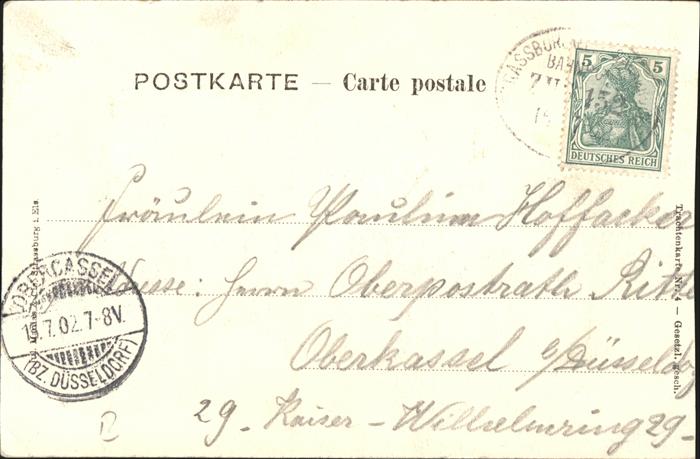 POSTKARTE — Carte postale
5 5
DEUTSCHES REICH
Fräulein Paulina Hoffacker
Adresse: Herrn Oberpostrath
Oberkassel b/Düsseldorf
29 - Kaiser - Wilhelmring 29 -
OBERCASSEL
7.02.7-8V.
(BZ. DÜSSELDORF)
Trachtenkarte Nr. 4 — Gesetzl. gesch.
Strassburg i. Els.
BAHN